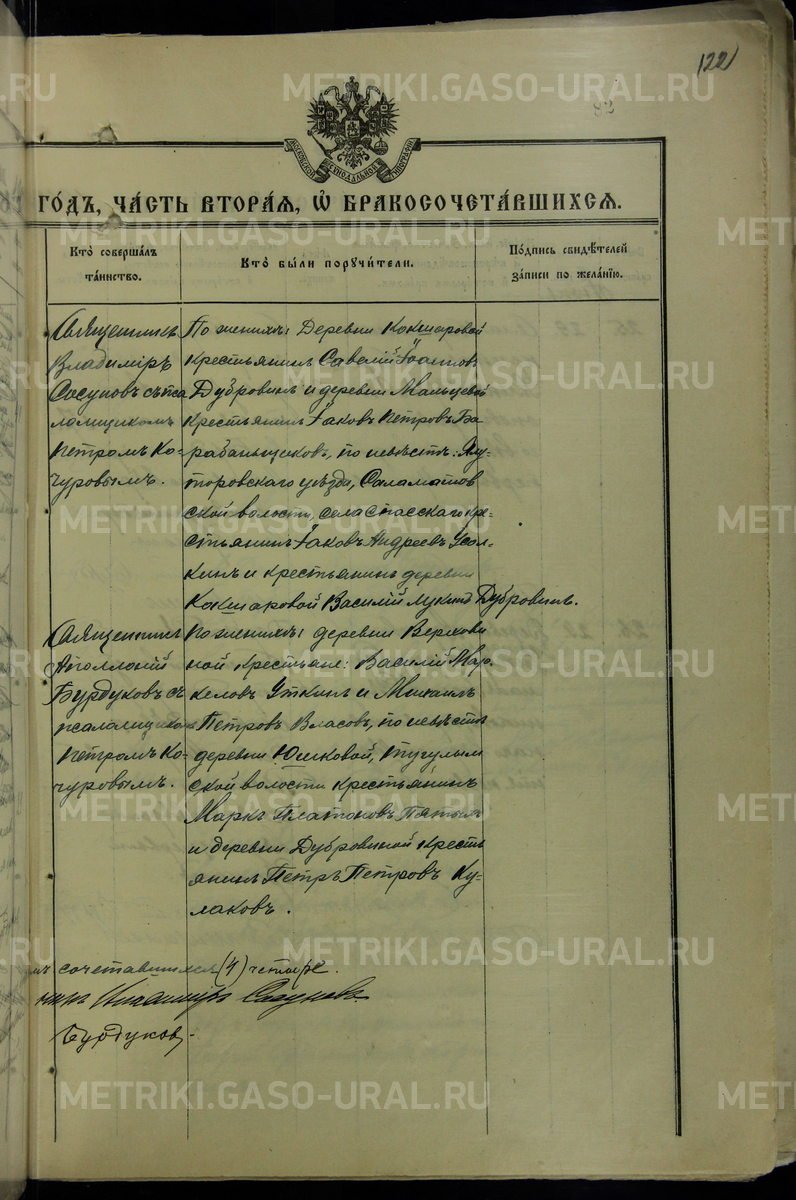 122
82
МОСКОВСКОЙ СѴНОДАЛЬНОЙ ТИПОГРАФІИ
ГОДЪ, ЧАСТЬ ВТОРАЯ, Ѿ БРАКОСОЧЕТАВШИХСЯ.
Кто совершалъ таинство.
Кто были поручители.
Подпись свидѣтелей записи по желанію.
Священникъ
Владиміръ
Сосуновъ съ пса
ломщикомъ
Петромъ Ко-
чуровымъ.
По женихѣ: Деревни Кокшаровой
крестьянинъ Савелій Іоанновъ
Дубровинъ и деревни Мальцевой
крестьянинъ Іаковъ Петровъ Ба
рабанщиковъ, по невѣстѣ: Ялу-
торовскаго уѣзда, Саламатов
ской волости, села Спасскаго кре-
стьянинъ Іаковъ Андреевъ Усол-
кинъ и крестьянинъ деревни
Кокшаровой Василій Лукинъ Дубровинъ.
Священникъ
Аполлоній
Бурдуковъ съ
псаломщикомъ
Петромъ Ко-
чуровымъ.
По женихѣ: деревни Верхови
ной крестьяне: Василій Мар-
келовъ Уткинъ и Михаилъ
Петровъ Власовъ, по невѣстѣ
деревни Юшковой, Тугулым
ской волости крестьянинъ
Маркъ Платоновъ
и деревни Дубровиной кресть
янинъ Петръ Петровъ Ку-
лаковъ.
сочетавшихся (4) четыре.
Владиміръ Сосуновъ
Бурдуковъ
METRIKI.GASO-URAL.RU